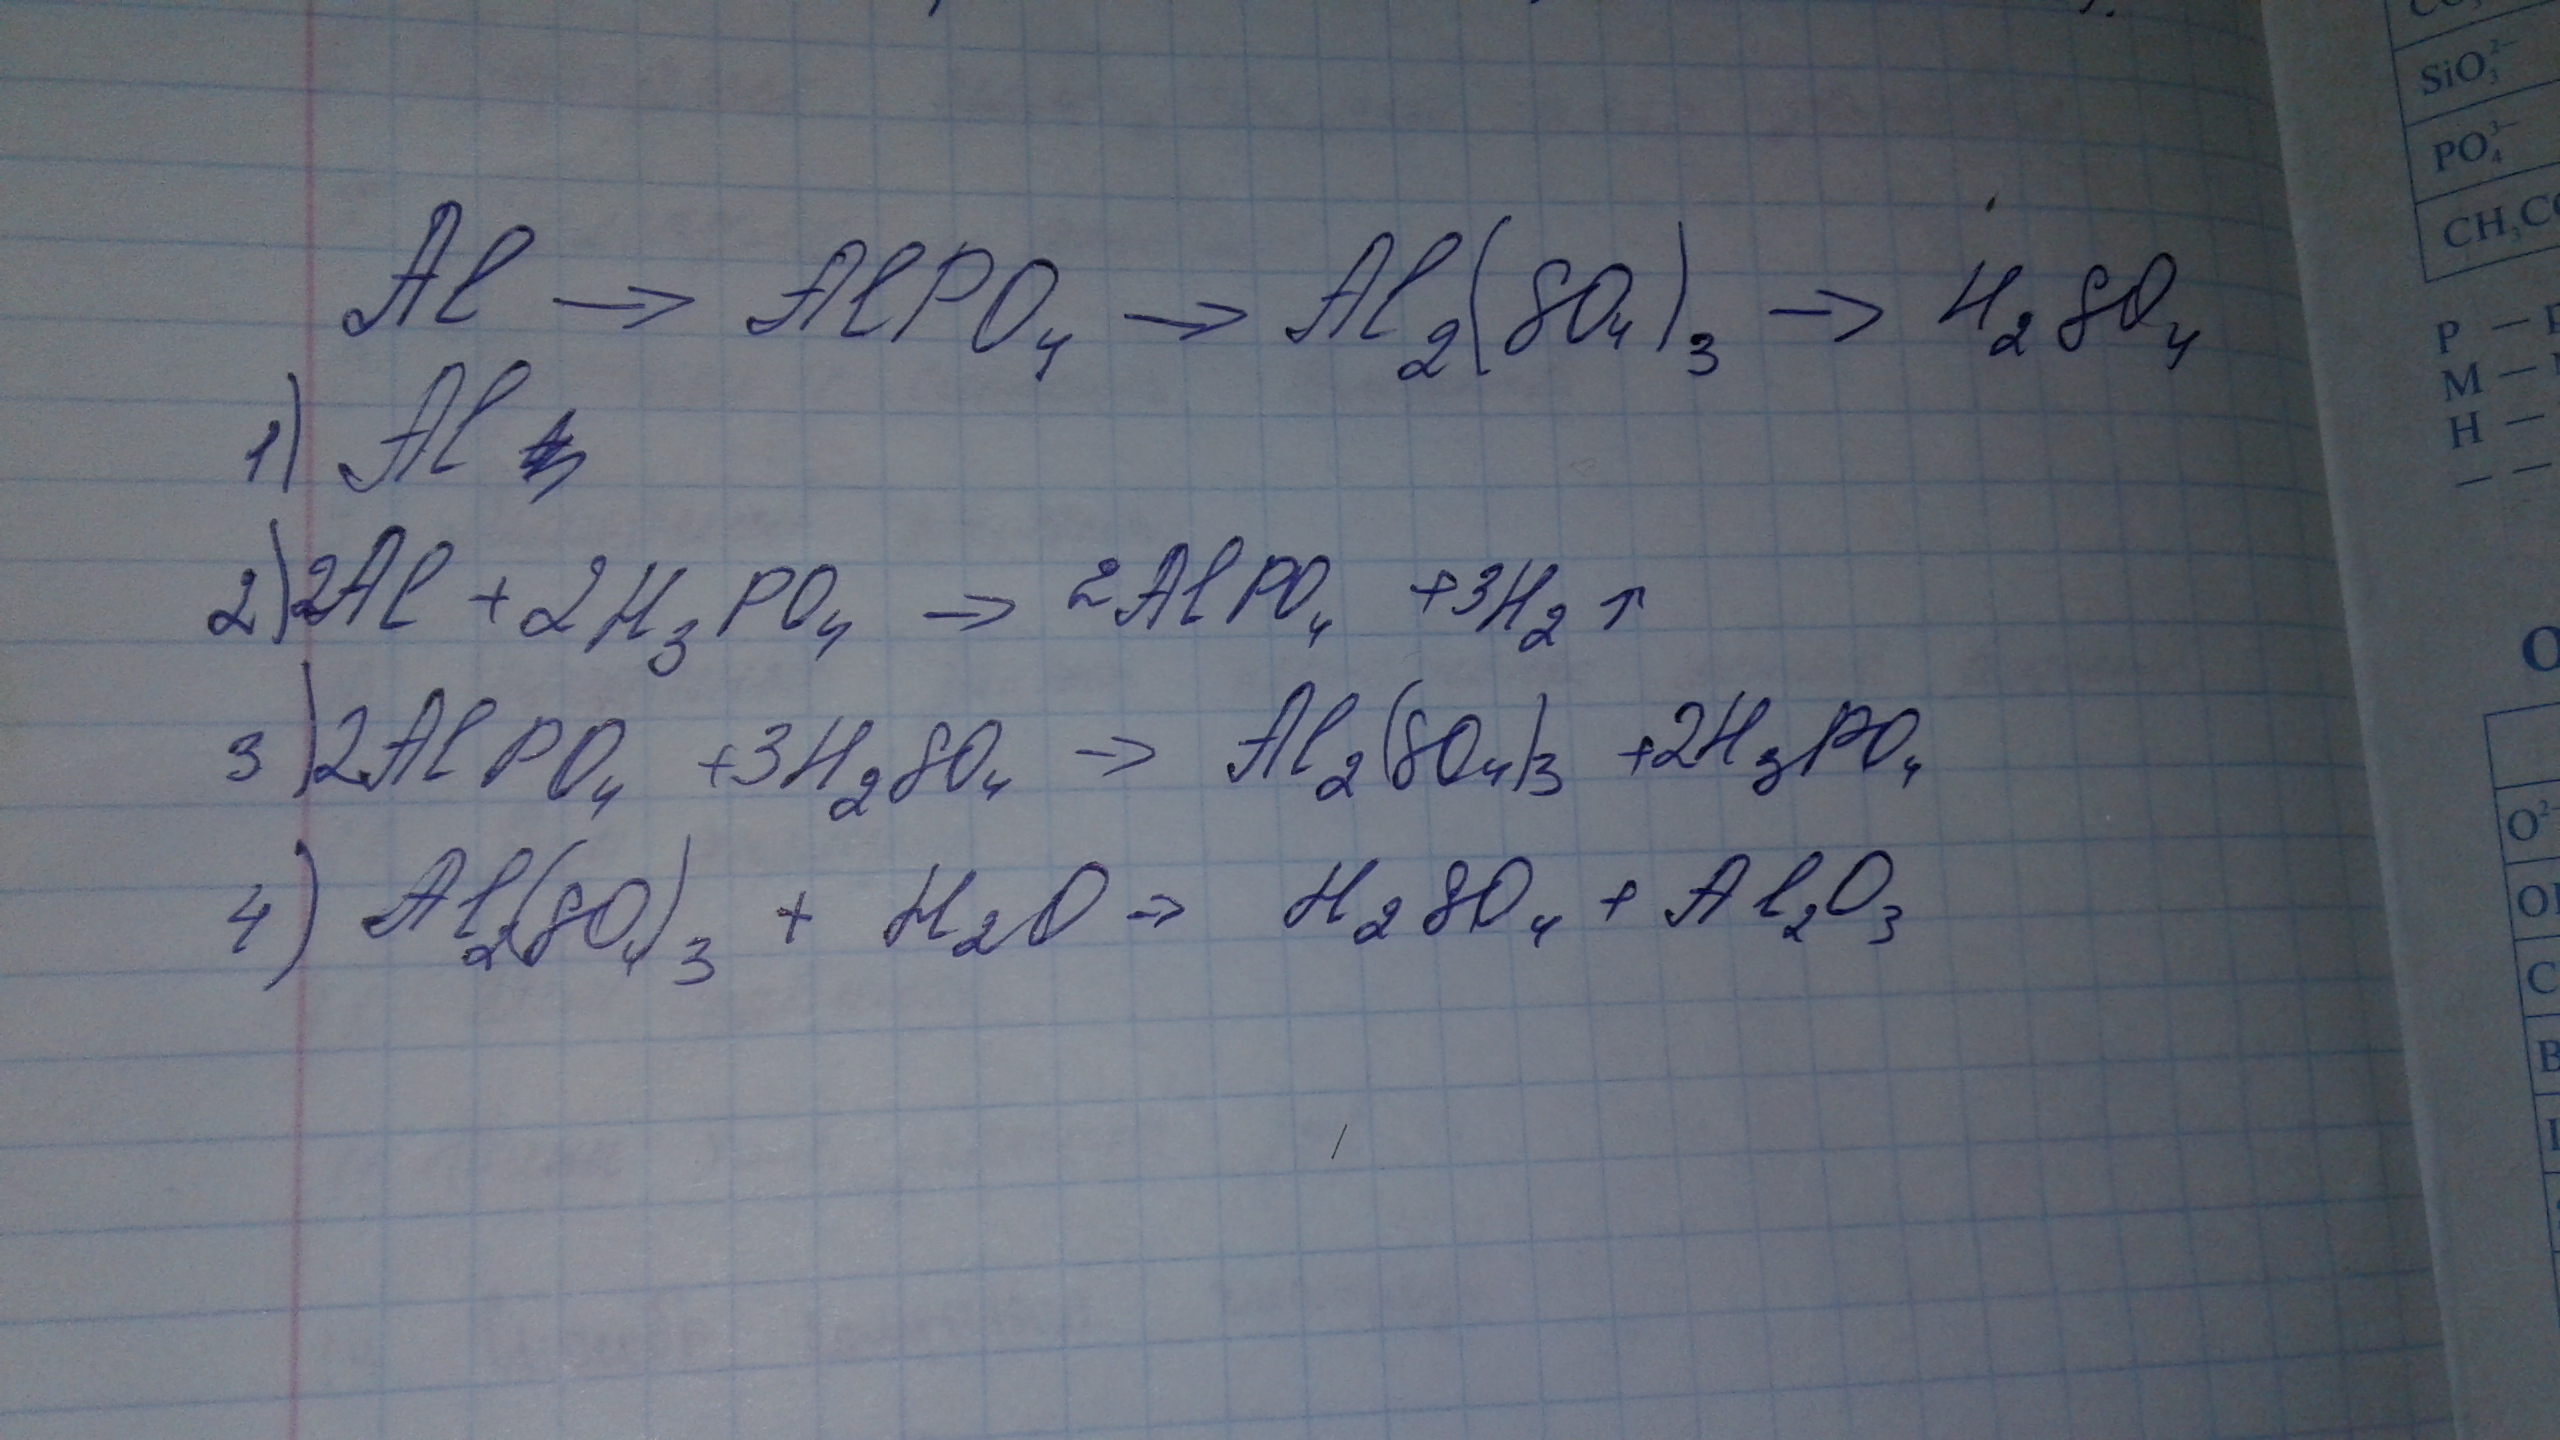 Al → AlPO₄ → Al₂(SO₄)₃ → H₂SO₄
1) Al
2) 2Al + 2H₃PO₄ → 2AlPO₄ + 3H₂ ↑
3) 2AlPO₄ + 3H₂SO₄ → Al₂(SO₄)₃ + 2H₃PO₄
4) Al₂(SO₄)₃ + H₂O → H₂SO₄ + Al₂O₃
SiO₃²⁻
PO₄³⁻
P –
M –
H –
– –
O²⁻